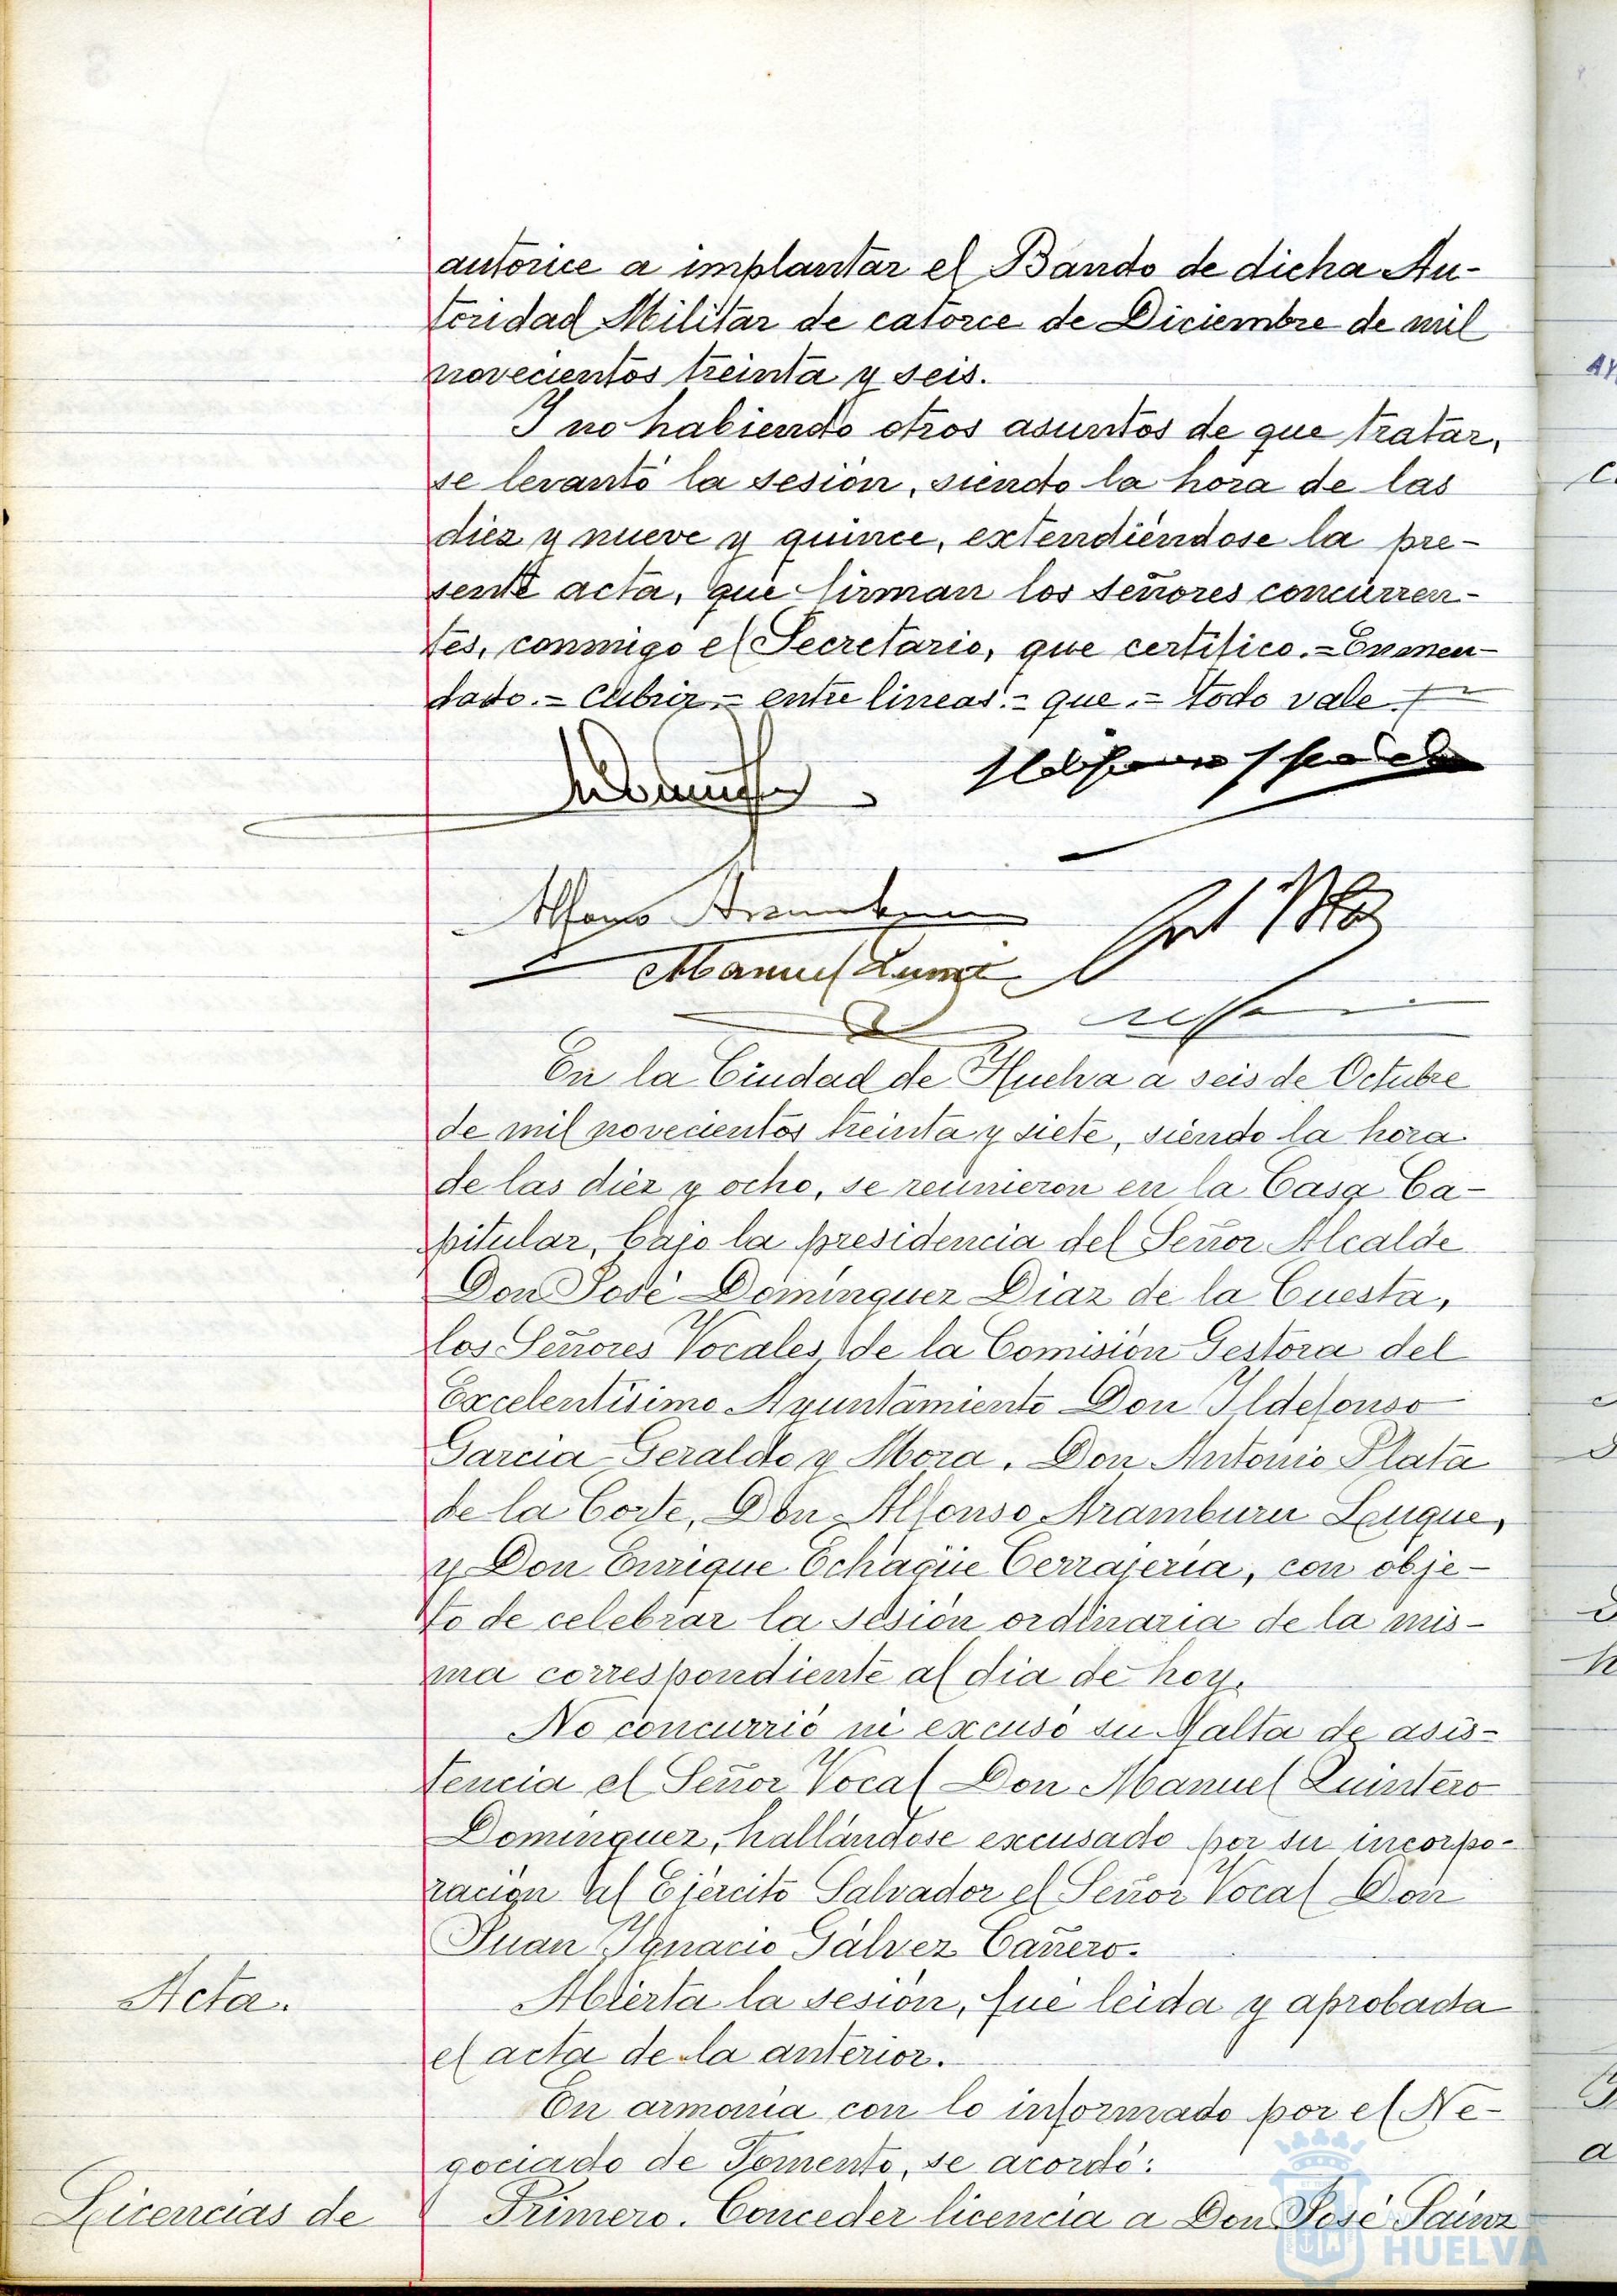 autorice a implantar el Bando de dicha Au-
toridad Militar de catorce de Diciembre de mil
novecientos treinta y seis.
Y no habiendo otros asuntos de que tratar,
se levantó la sesión, siendo la hora de las
diez y nueve y quince, extendiéndose la pre-
sente acta, que firman los señores concurren-
tes, conmigo el Secretario, que certifico.=Enmen-
dado.= cubrir.= entre lineas.= que.= todo vale
Alfonso Aramburu
Manuel
En la Ciudad de Huelva a seis de Octubre
de mil novecientos treinta y siete, siendo la hora
de las diez y ocho, se reunieron en la Casa Ca-
pitular, bajo la presidencia del Señor Alcalde
Don José Dominguez Diaz de la Cuesta,
los Señores Vocales de la Comisión Gestora del
Excelentísimo Ayuntamiento Don Ildefonso
Garcia Geraldo y Mora, Don Antonio Plata
de la Corte, Don Alfonso Aramburu Luque,
y Don Enrique Echagüe Cerrajeria, con obje-
to de celebrar la sesión ordinaria de la mis-
ma correspondiente al dia de hoy.
No concurrió ni excusó su falta de asis-
tencia el Señor Vocal Don Manuel Quintero
Dominguez, hallándose excusado por su incorpo-
ración al Ejército Salvador el Señor Vocal Don
Juan Ignacio Gálvez Cañero.
Acta.
Abierta la sesión, fué leida y aprobada
el acta de la anterior.
En armonia con lo informado por el Ne-
gociado de Fomento, se acordó:
Licencias de
Primero. Conceder licencia a Don José Sáinz
HUELVA